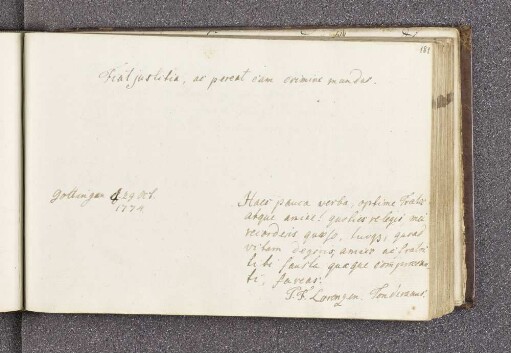 181
Fiat justitia, ac pereat cum crimine mundus.
Gottingen d 29 Oct.
1774
Haec pauca verba, optime Frater
atque amice! quoties relegis mei
recorderis quæso, tuoq;, quoad
vitam degens, amico ac fratri
tibi fausta quæque comprecan
ti, faveas.
Lorenzen. Tonderanus.